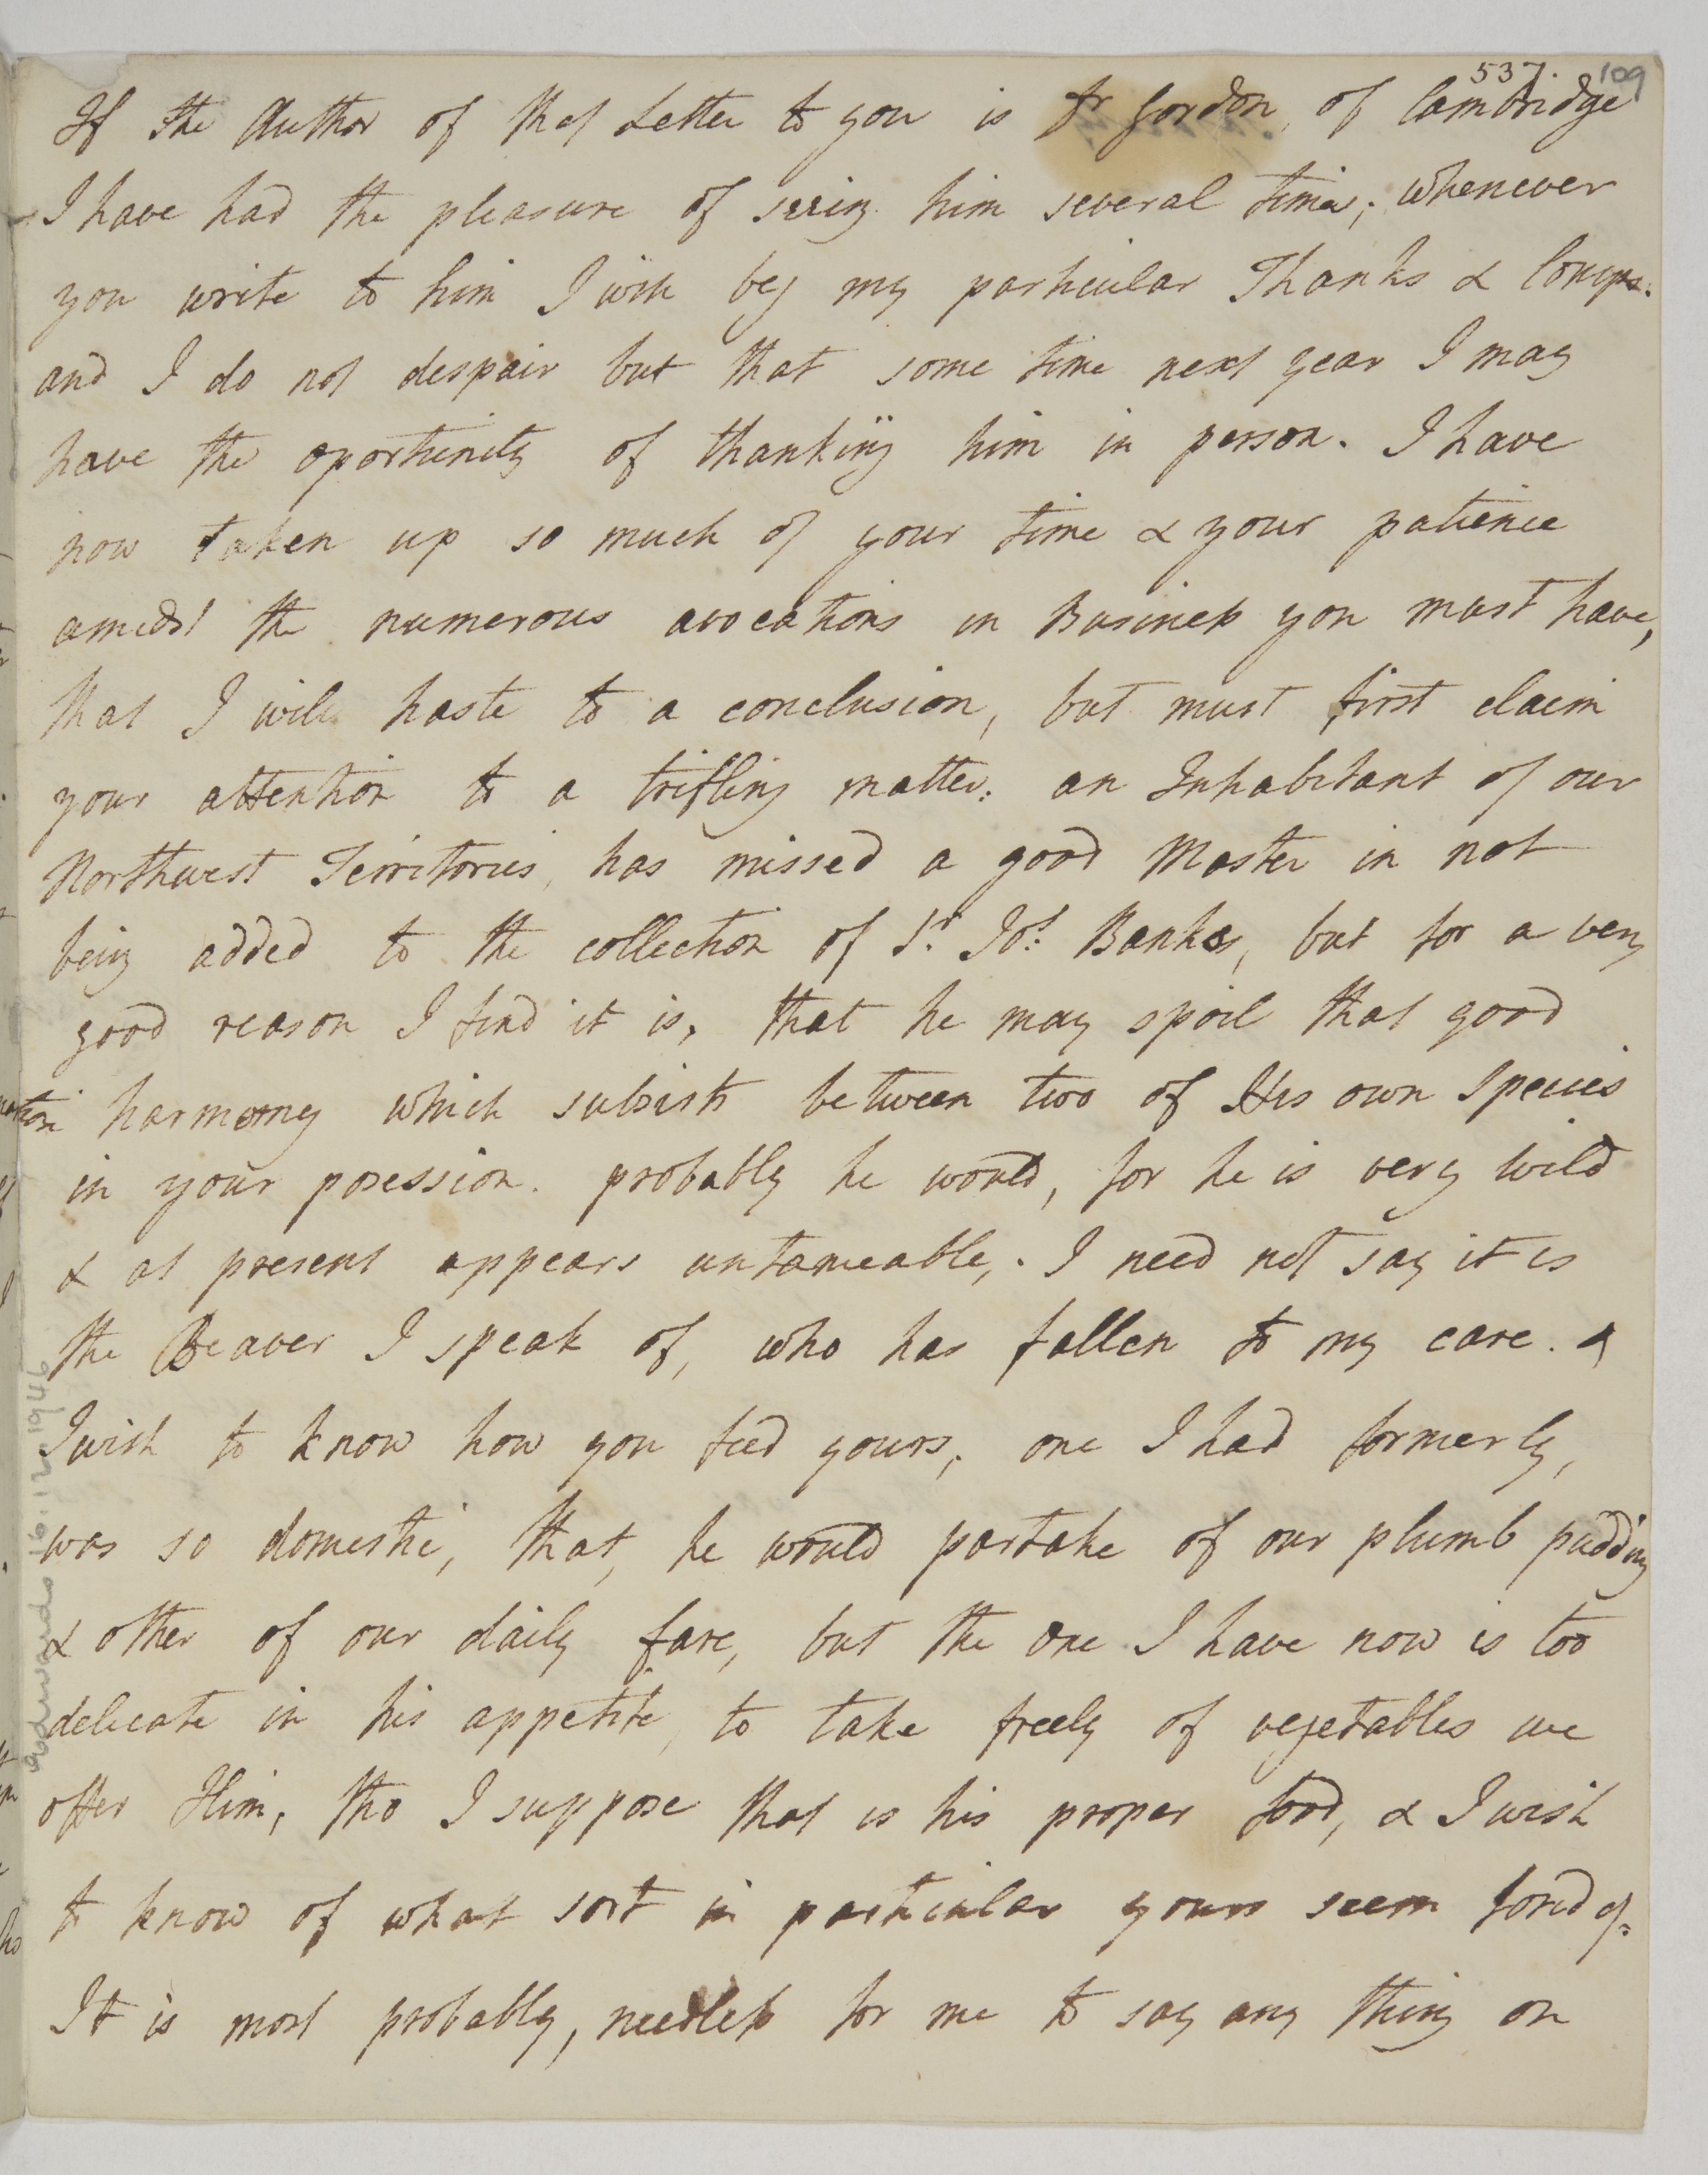 537. 109
If the Author of that Letter to you is Dr Gordon, of Cambridge
I have had the pleasure of seeing him several times; whenever
you write to him I wish beg my particular Thanks & Comps.
and I do not despair but that some time next year I may
have the oportunity of thanking him in person. I have
now taken up so much of your time & your patience
amidst the numerous avocations in Business you must have,
that I will haste to a conclusion, but must first claim
your attention to a trifling matter: an Inhabitant of our
Northwest Territories, has missed a good Master in not
being added to the collection of Sr. Jos: Banks, but for a very
good reason I find it is, that he may spoil that good
harmony which subsists between two of His own Species
in your posession. probably he would, for he is very wild
& at present appears untameable,. I need not say it is
the Beaver I speak of, who has fallen to my care. &
I wish to know how you feed yours, one I had formerly,
was so domestic, that, he would partake of our plumb pudding
& other of our daily fare, but the one I have now is too
delicate in his appetite, to take freely of vegetables we
offer Him, tho I suppose that is his proper food, & I wish
to know of what sort in particular yours seem fond of=
It is most probably, needless for me to say any thing on
Edwards 16.12.1946